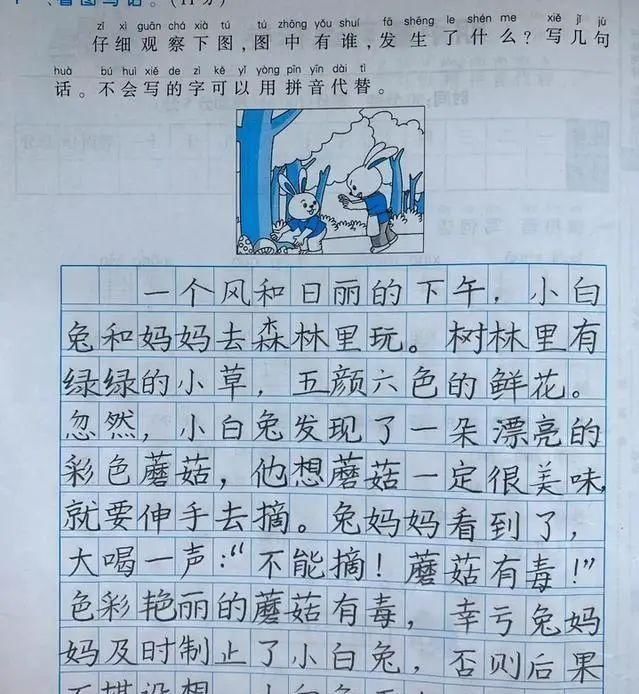 看图写话。(11分)
zǐ xì guān chá xià tú tú zhōng yǒu shuí fā shēng le shén me xiě jǐ jù
仔细观察下图,图中有谁,发生了什么?写几句
huà bú huì xiě de zì kě yǐ yòng pīn yīn dài tì
话。不会写的字可以用拼音代替。
一个风和日丽的下午，小白
兔和妈妈去森林里玩。树林里有
绿绿的小草，五颜六色的鲜花。
忽然，小白兔发现了一朵漂亮的
彩色蘑菇，他想蘑菇一定很美味，
就要伸手去摘。兔妈妈看到了，
大喝一声：“不能摘！蘑菇有毒！”
色彩艳丽的蘑菇有毒，幸亏兔妈
妈及时制止了小白兔，否则后果